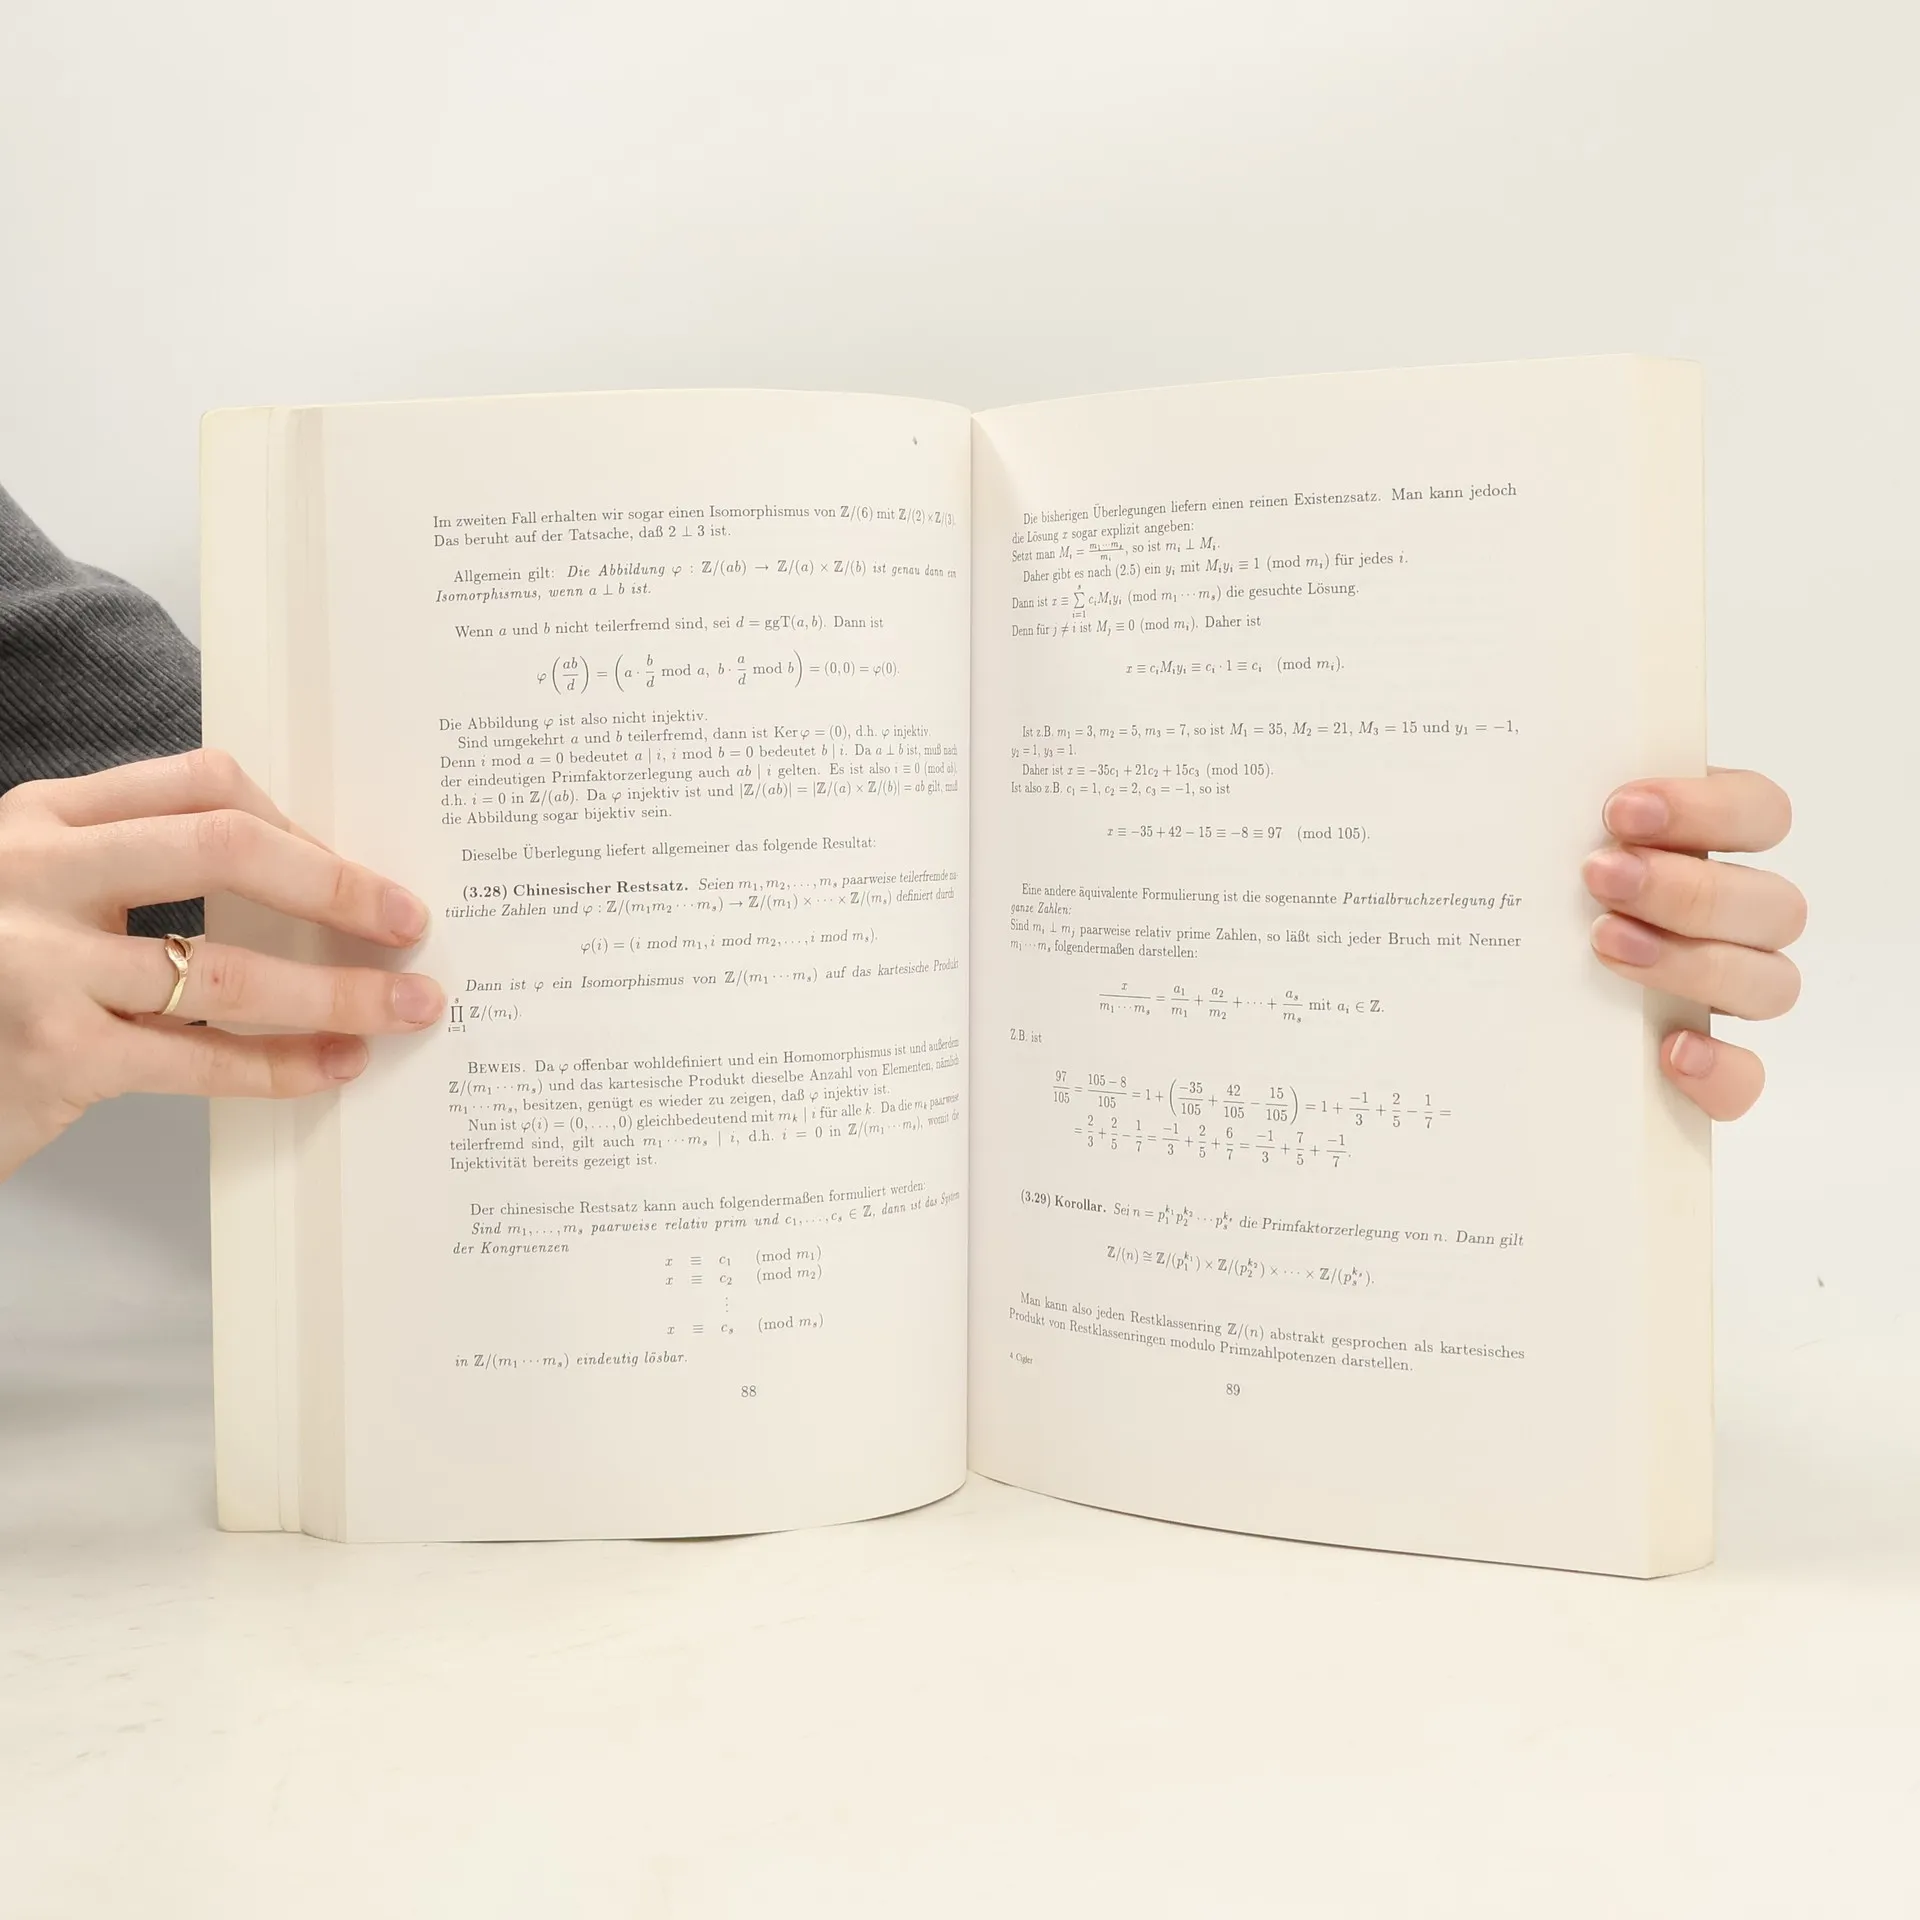 Im zweiten Fall erhalten wir sogar einen Isomorphismus von ℤ/(6) mit ℤ/(2) × ℤ/(3).
Das beruht auf der Tatsache, daß 2 ⊥ 3 ist.
Allgemein gilt: Die Abbildung φ : ℤ/(ab) → ℤ/(a) × ℤ/(b) ist genau dann ein
Isomorphismus, wenn a ⊥ b ist.
Wenn a und b nicht teilerfremd sind, sei d = ggT(a, b). Dann ist
φ(ab/d) = (a · b/d mod a, b · a/d mod b) = (0,0) = φ(0).
Die Abbildung φ ist also nicht injektiv.
Sind umgekehrt a und b teilerfremd, dann ist Ker φ = (0), d.h. φ injektiv.
Denn i mod a = 0 bedeutet a | i, i mod b = 0 bedeutet b | i. Da a ⊥ b ist, muß nach
der eindeutigen Primfaktorzerlegung auch ab | i gelten. Es ist also i ≡ 0 (mod ab),
d.h. i = 0 in ℤ/(ab). Da φ injektiv ist und |ℤ/(ab)| = |ℤ/(a) × ℤ/(b)| = ab gilt, muß
die Abbildung sogar bijektiv sein.
Dieselbe Überlegung liefert allgemeiner das folgende Resultat:
(3.28) Chinesischer Restsatz. Seien m₁, m₂, ..., mₛ paarweise teilerfremde na-
türliche Zahlen und φ : ℤ/(m₁m₂ ··· mₛ) → ℤ/(m₁) × ··· × ℤ/(mₛ) definiert durch
φ(i) = (i mod m₁, i mod m₂, ..., i mod mₛ).
Dann ist φ ein Isomorphismus von ℤ/(m₁ ··· mₛ) auf das kartesische Produkt
∏_{i=1}^{s} ℤ/(mᵢ).
BEWEIS. Da φ offenbar wohldefiniert und ein Homomorphismus ist und außerdem
ℤ/(m₁ ··· mₛ) und das kartesische Produkt dieselbe Anzahl von Elementen, nämlich
m₁ ··· mₛ, besitzen, genügt es wieder zu zeigen, daß φ injektiv ist.
Nun ist φ(i) = (0, ..., 0) gleichbedeutend mit mₖ | i für alle k. Da die mₖ paarweise
teilerfremd sind, gilt auch m₁ ··· mₛ | i, d.h. i = 0 in ℤ/(m₁ ··· mₛ), womit die
Injektivität bereits gezeigt ist.
Der chinesische Restsatz kann auch folgendermaßen formuliert werden:
Sind m₁, ..., mₛ paarweise relativ prim und c₁, ..., cₛ ∈ ℤ, dann ist das System
der Kongruenzen
x ≡ c₁ (mod m₁)
x ≡ c₂ (mod m₂)
⋮
x ≡ cₛ (mod mₛ)
in ℤ/(m₁ ··· mₛ) eindeutig lösbar.
88
Die bisherigen Überlegungen liefern einen reinen Existenzsatz. Man kann jedoch
die Lösung x sogar explizit angeben:
Setzt man Mᵢ = (m₁···mₛ)/mᵢ, so ist mᵢ ⊥ Mᵢ.
Daher gibt es nach (2.5) ein yᵢ mit Mᵢyᵢ ≡ 1 (mod mᵢ) für jedes i.
Dann ist x ≡ ∑_{i=1}^{s} cᵢMᵢyᵢ (mod m₁ ··· mₛ) die gesuchte Lösung.
Denn für j ≠ i ist Mⱼ ≡ 0 (mod mᵢ). Daher ist
x ≡ cᵢMᵢyᵢ ≡ cᵢ · 1 ≡ cᵢ (mod mᵢ).
Ist z.B. m₁ = 3, m₂ = 5, m₃ = 7, so ist M₁ = 35, M₂ = 21, M₃ = 15 und y₁ = −1,
y₂ = 1, y₃ = 1.
Daher ist x ≡ −35c₁ + 21c₂ + 15c₃ (mod 105).
Ist also z.B. c₁ = 1, c₂ = 2, c₃ = −1, so ist
x ≡ −35 + 42 − 15 ≡ −8 ≡ 97 (mod 105).
Eine andere äquivalente Formulierung ist die sogenannte Partialbruchzerlegung für
ganze Zahlen:
Sind mᵢ ⊥ mⱼ paarweise relativ prime Zahlen, so läßt sich jeder Bruch mit Nenner
m₁ ··· mₛ folgendermaßen darstellen:
x/(m₁ ··· mₛ) = a₁/m₁ + a₂/m₂ + ··· + aₛ/mₛ mit aᵢ ∈ ℤ.
Z.B. ist
97/105 = (105 − 8)/105 = 1 + (−35/105 + 42/105 − 15/105) = 1 + −1/3 + 2/5 − 1/7 =
= 2/3 + 2/5 − 1/7 = −1/3 + 2/5 + 6/7 = −1/3 + 7/5 + −1/7.
(3.29) Korollar. Sei n = p₁^{k₁} p₂^{k₂} ··· pₛ^{kₛ} die Primfaktorzerlegung von n. Dann gilt
ℤ/(n) ≅ ℤ/(p₁^{k₁}) × ℤ/(p₂^{k₂}) × ··· × ℤ/(pₛ^{kₛ}).
Man kann also jeden Restklassenring ℤ/(n) abstrakt gesprochen als kartesisches
Produkt von Restklassenringen modulo Primzahlpotenzen darstellen.
4 Cigler
89